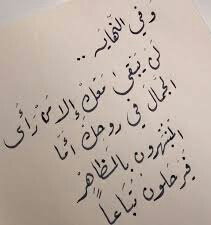 وَفي النِّهَايه ..
لَن يَبقىٰ مَعَكْ إلا مَن رَأى
الجَمال في روحكْ أمَا
المُنبَهرون بالمَظَاهِرْ
فَيَرحَلون تِبَاعاً